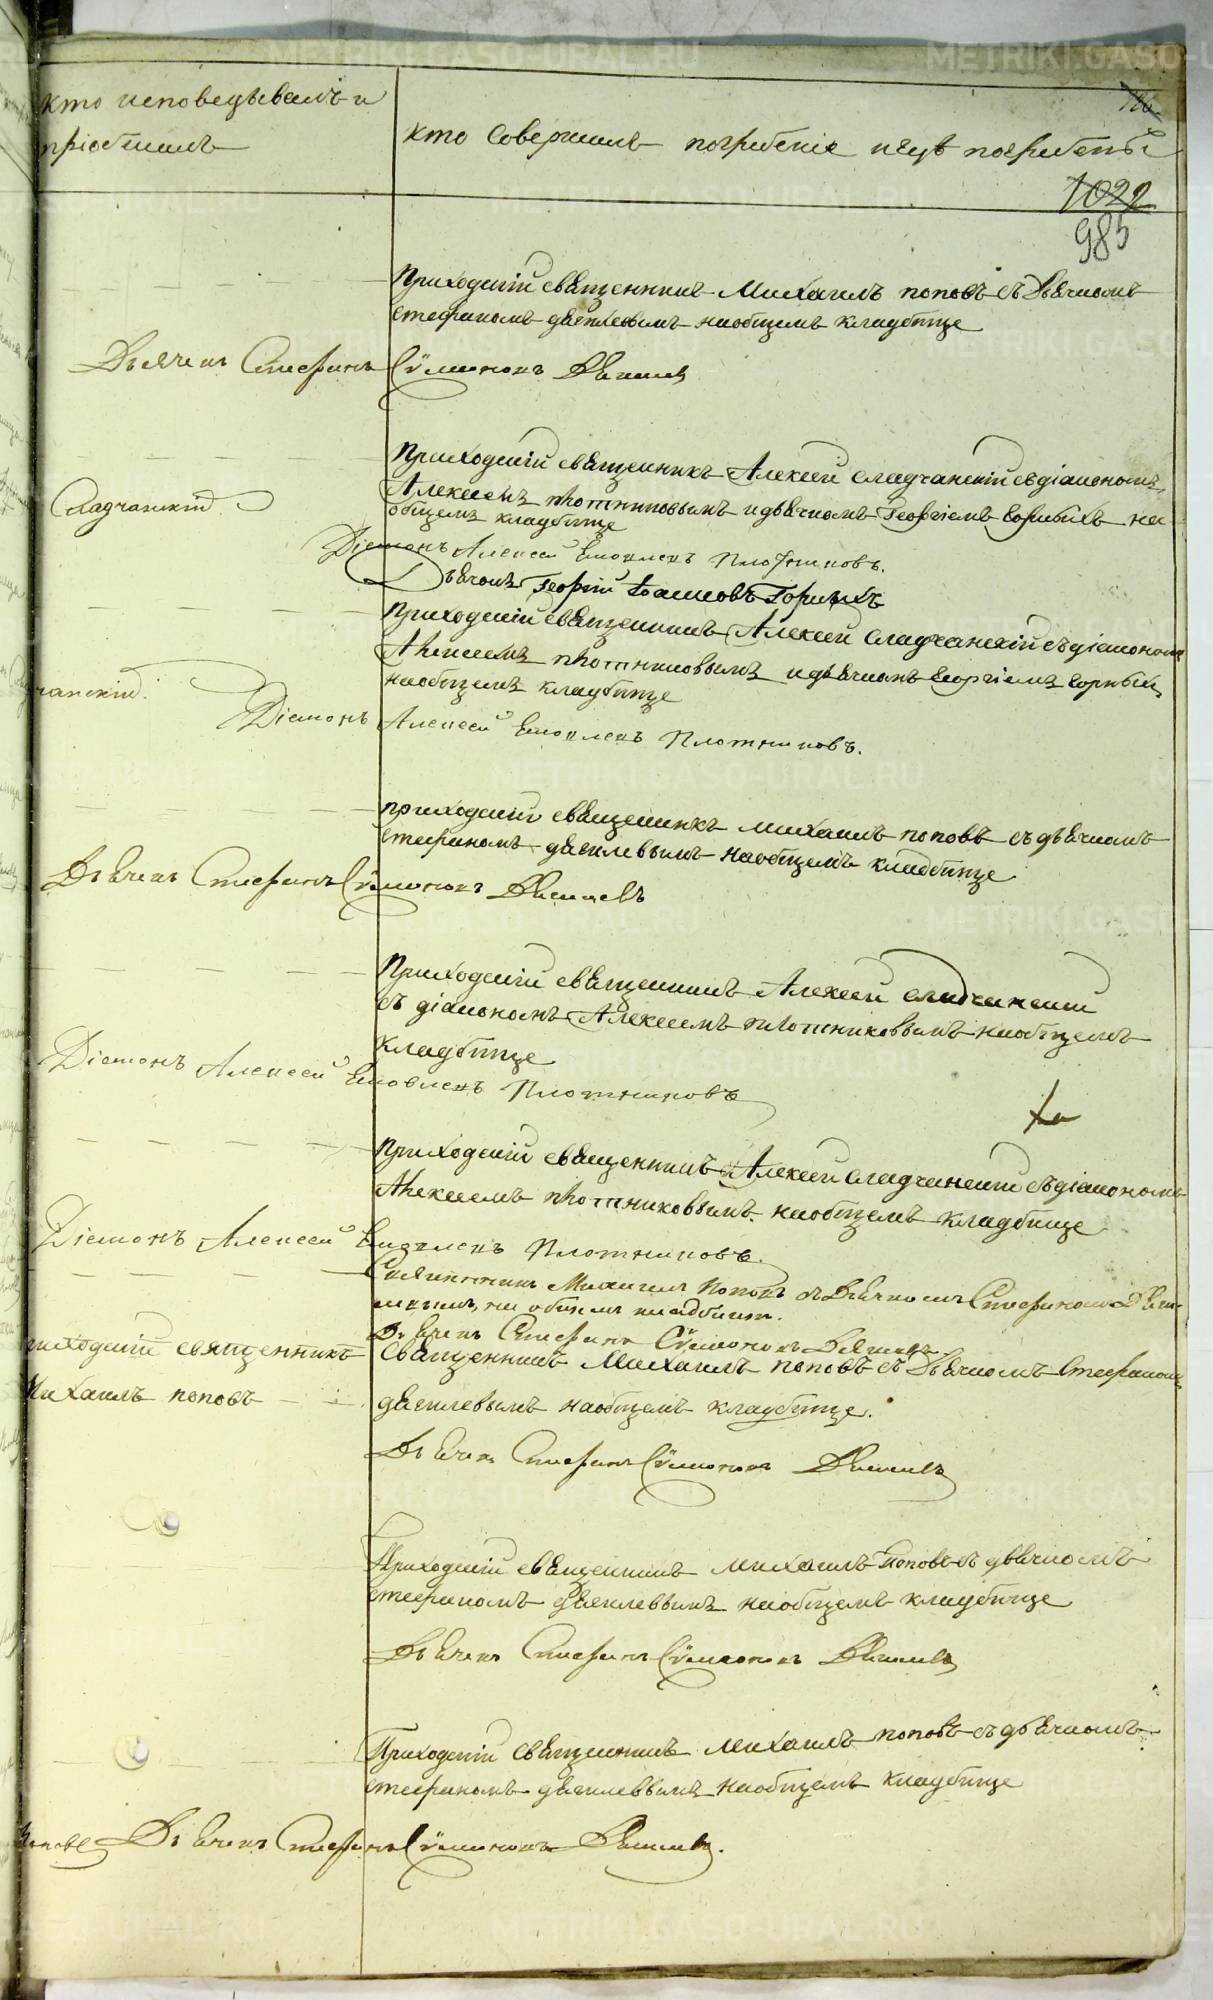 кто исповедывалъ и
пріобщилъ
кто совершилъ погребеніе и гдѣ погребены
1022
985
Приходскій священникъ Михаилъ поповъ съ Дьячкомъ
стефаномъ наобщемъ кладбище
Дьячекъ Стефанъ Сѵмоновъ
Приходскій священникъ Алексей сладчанскій съ діакономъ
Алексеемъ плотниковымъ и дьячкомъ Георгіемъ Горныхъ на
общемъ кладбище
Сладчанскій
Діаконъ Алексей Яковлевъ Плотниковъ.
Дьячокъ Георгій Горныхъ
Приходскій священникъ Алексей сладчанскій съ діакономъ
Алексеемъ плотниковымъ и дьячкомъ Георгіемъ Горныхъ
наобщемъ кладбище
чанскій.
Діаконъ Алексей Яковлевъ Плотниковъ.
приходскій священникъ михаилъ поповъ съ дьячкомъ
стефаномъ наобщемъ кладбище
Дьячекъ Стефанъ Сѵмоновъ
Приходскій священникъ Алексей сладчанскій
съ діакономъ Алексеемъ плотниковымъ наобщемъ
кладбище
Діаконъ Алексей Яковлевъ Плотниковъ
Приходскій священникъ Алексей сладчанскій съ діакономъ
Алексеемъ плотниковымъ наобщемъ кладбище
Діаконъ Алексей Яковлевъ Плотниковъ.
Священникъ Михаилъ Поповъ съ Дьячкомъ Стефаномъ
на общемъ кладбище.
Дьячекъ Стефанъ Сѵмоновъ
приходскій священникъ
Михаилъ поповъ
Священникъ Михаилъ поповъ съ Дьячкомъ Стефаномъ
наобщемъ кладбище.
Дьячекъ Стефанъ Сѵмоновъ
Приходскій священникъ михаилъ Поповъ съ дьячкомъ
стефаномъ наобщемъ кладбище
Дьячекъ Стефанъ Сѵмоновъ
Приходскій священникъ михаилъ поповъ съ дьячкомъ
стефаномъ наобщемъ кладбище
Поповъ Дьячекъ Стефанъ Сѵмоновъ
METRIKI.GASO-URAL.RU